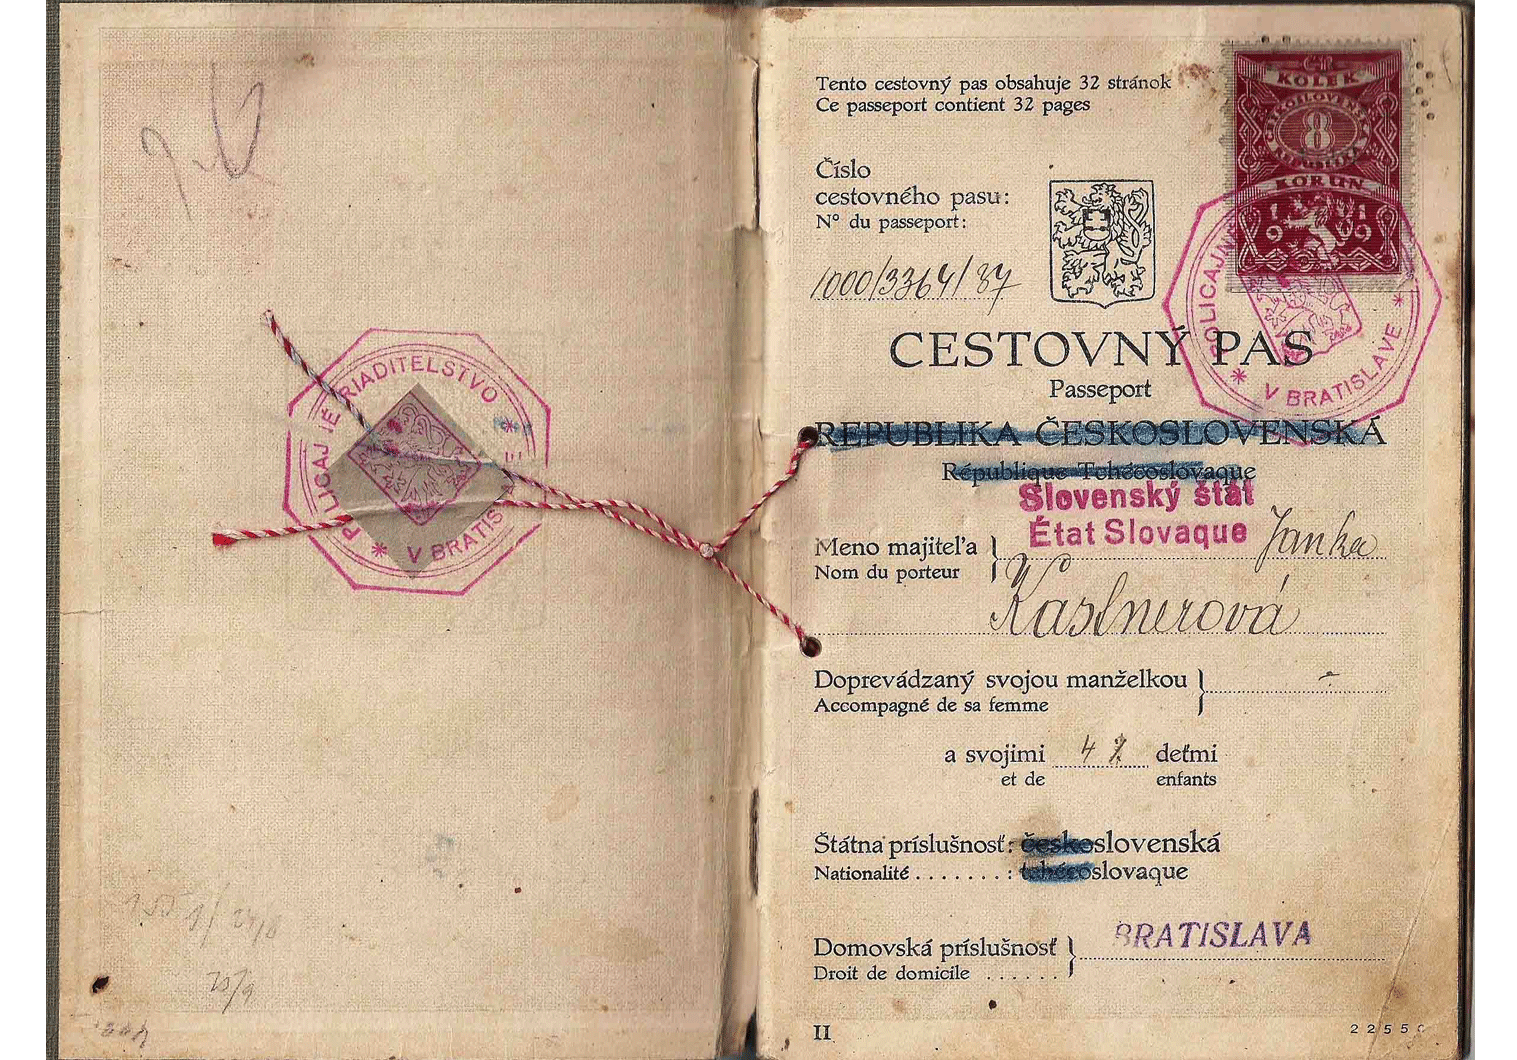 POLICAJNÉ RIADITELSTVO
* V BRATISLAVE *
Tento cestovný pas obsahuje 32 stránok
Ce passeport contient 32 pages
KOLEK
ČESKOSLOVENSKÁ
8
REPUBLIKA
KORUN
1919
Číslo
cestovného pasu:
N° du passeport:
1000/3364/37
POLICAJNÉ
* V BRATISLAVE *
CESTOVNÝ PAS
Passeport
REPUBLIKA ČESKOSLOVENSKÁ
République Tchécoslovaque
Slovenský štát
État Slovaque
Meno majiteľa Janka
Nom du porteur
Kastnerová
Doprevádzaný svojou manželkou -
Accompagné de sa femme
a svojimi 4 deťmi
et de enfants
Štátna príslušnosť: československá
Nationalité . . . . . . . : tchécoslovaque
Domovská príslušnosť BRATISLAVA
Droit de domicile . . . . . .
II
2255